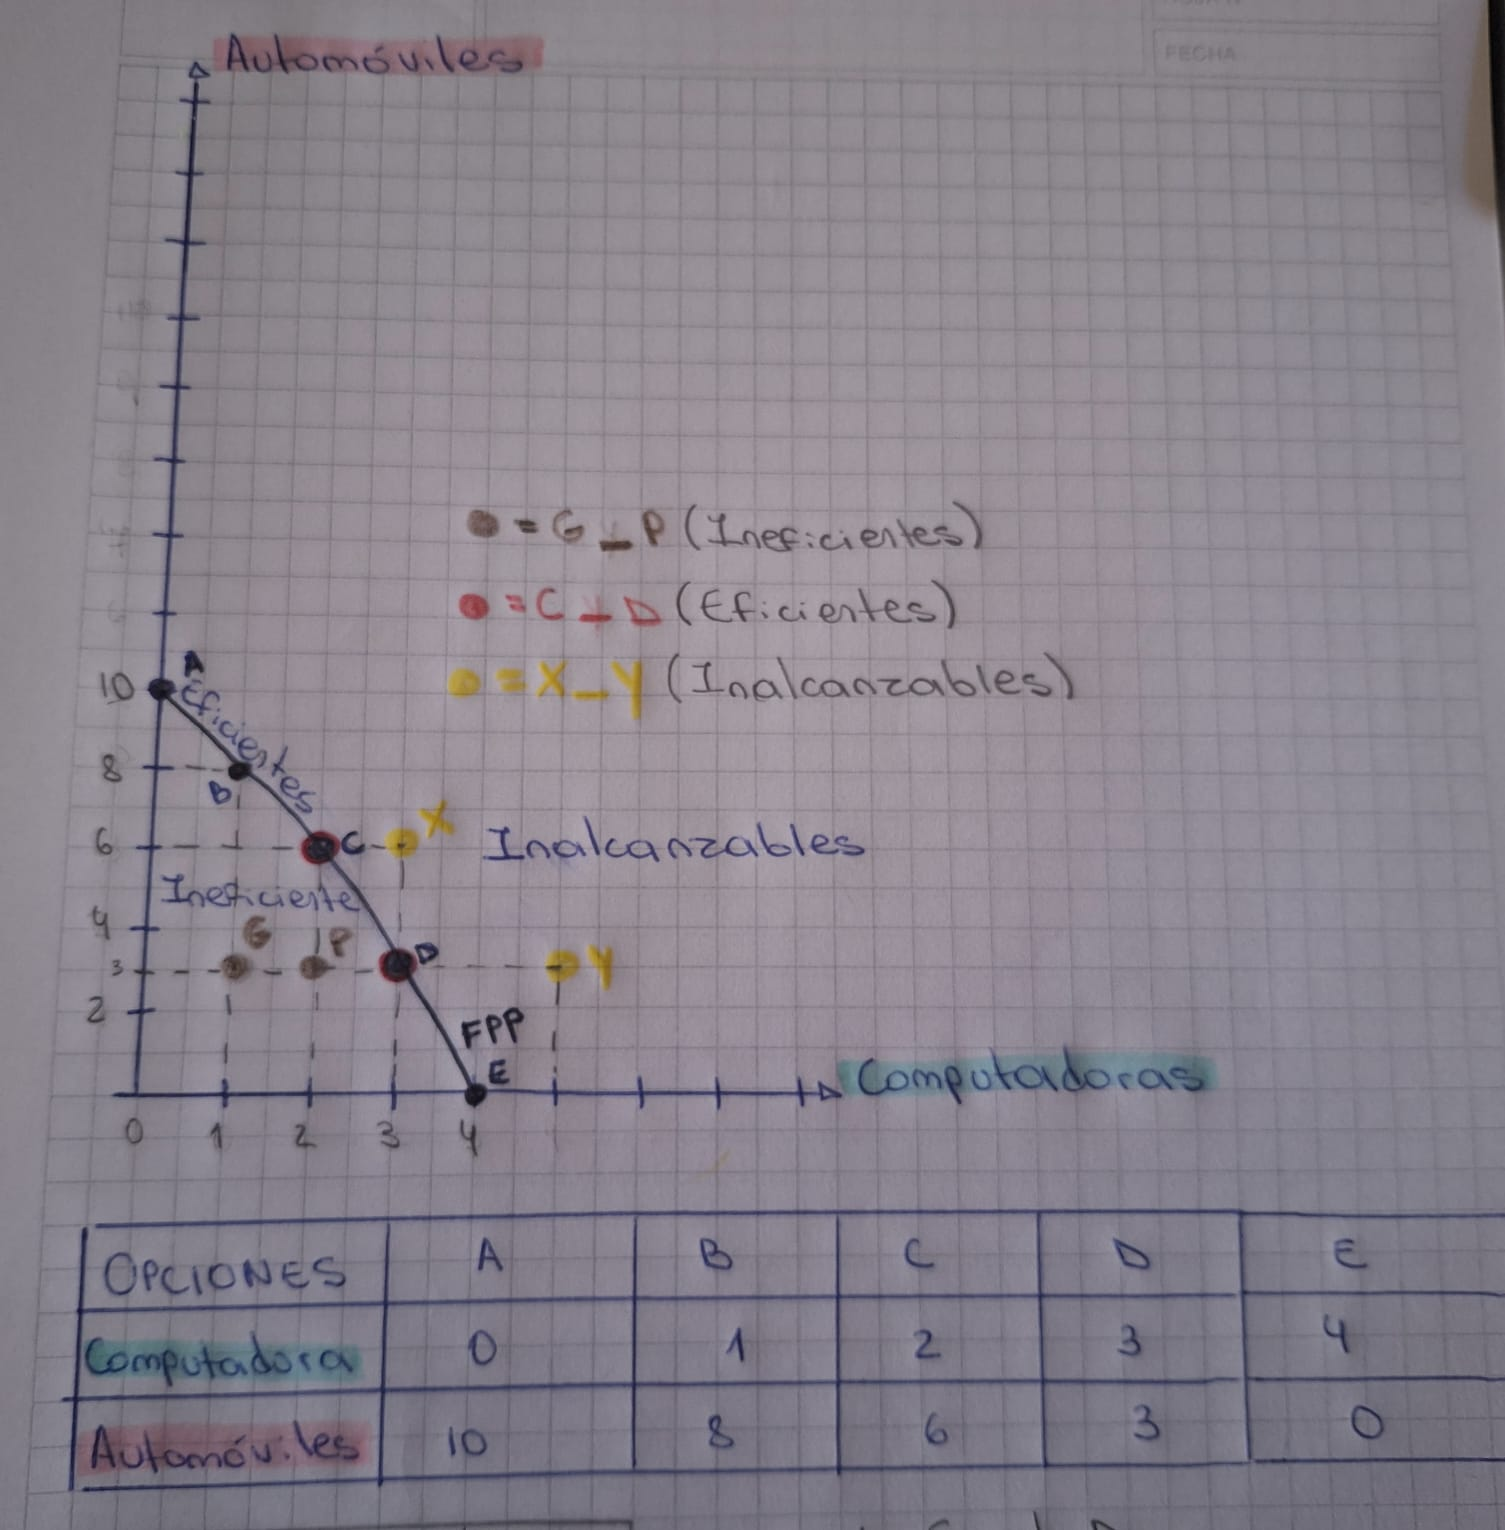 FECHA
Automóviles
● = G _ P (Ineficientes)
● = C _ D (Eficientes)
● = X _ Y (Inalcanzables)
A
10
Eficientes
8
B
X
6
C
Inalcanzables
Ineficiente
4
G
P
D
3
Y
2
FPP
E
Computadoras
0 1 2 3 4
OPCIONES A B C D E
Computadora 0 1 2 3 4
Automóviles 10 8 6 3 0